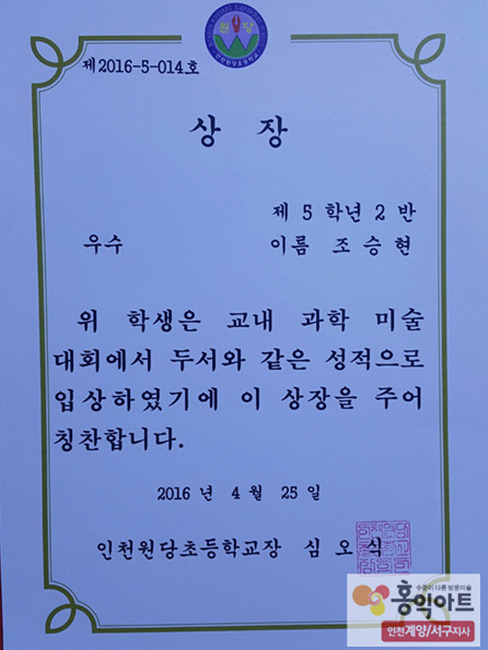 원 당
인천원당초등학교
제2016-5-014호
상 장
제 5 학년 2 반
우수 이름 조승현
위 학생은 교내 과학 미술
대회에서 두서와 같은 성적으로
입상하였기에 이 상장을 주어
칭찬합니다.
2016 년 4 월 25 일
인천원당초등학교장 심 오 식
수준이 다른 방문미술
홍익아트
인천계양/서구지사